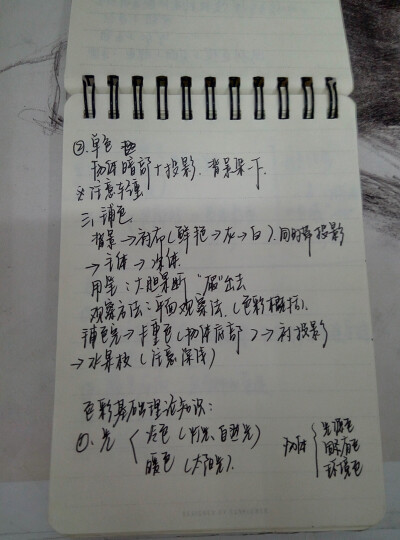 ②.单色
物体暗部+投影.背景架一下.
※注意车锤
三.铺色
背景→衬布(鲜艳→灰→白).同时带投影
→主体→浅体
用笔:大胆果断"摆"出去
观察方法:平面观察法.(色彩概括).
铺色完→卡重色(物体底部)→衬投影
→水果枝(注意深浅)
色彩基础理论知识:
①.光 { 冷色(灯光、自然光) 物体 { 光源色
固有色
暖色(太阳光). 环境色